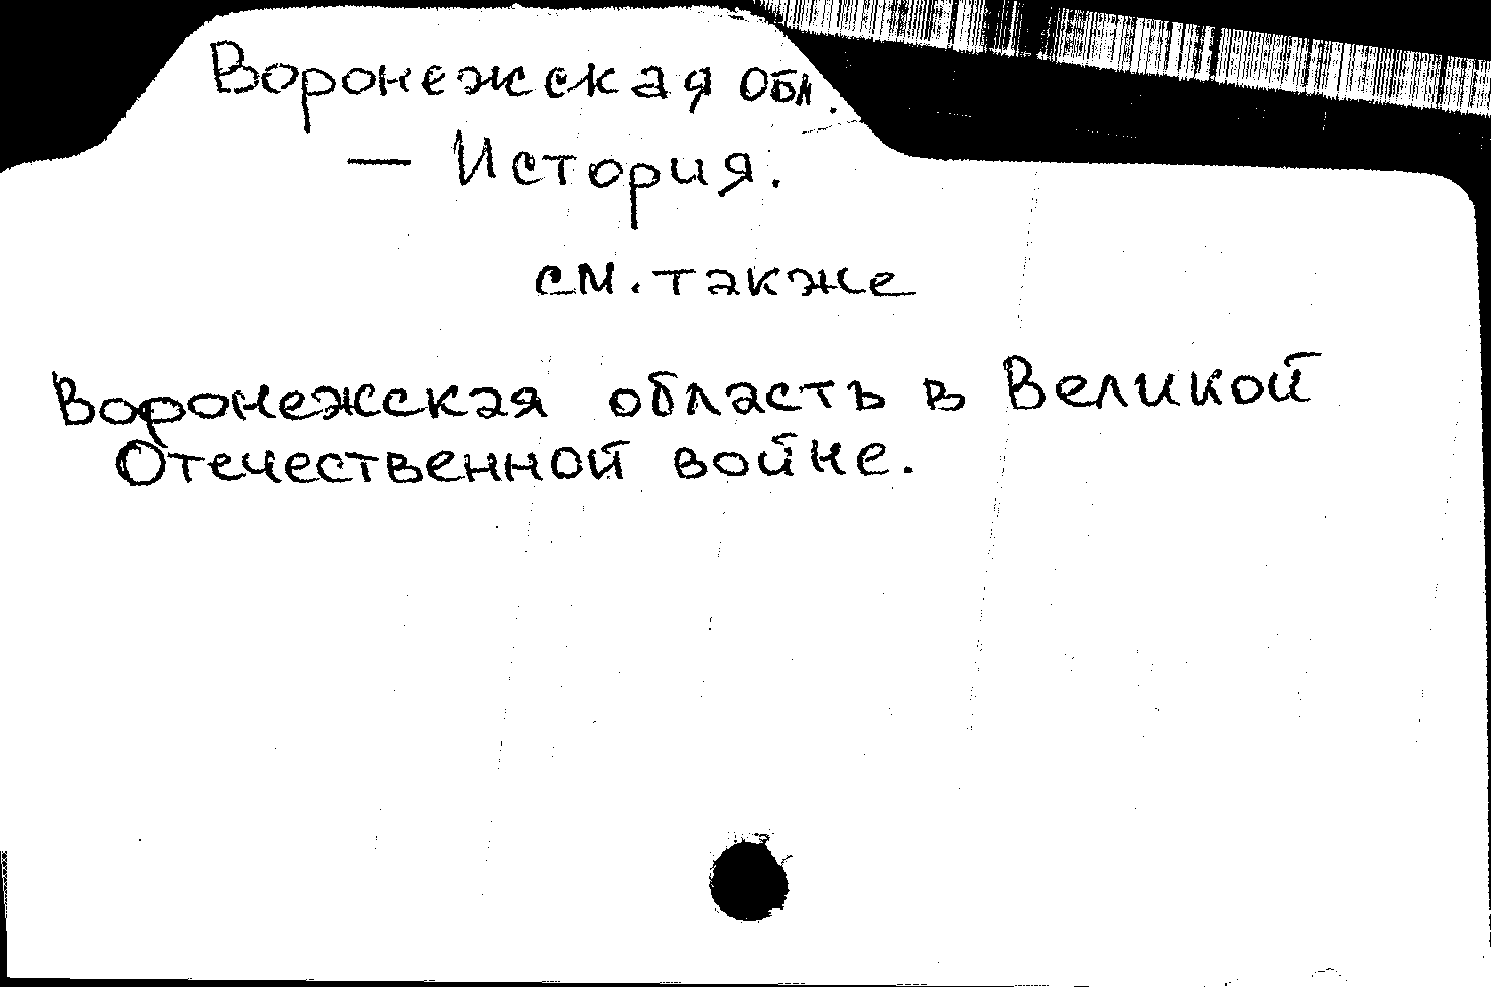 Воронежская обл.
— История.
см. также
Воронежская область в Великой
Отечественной войне.